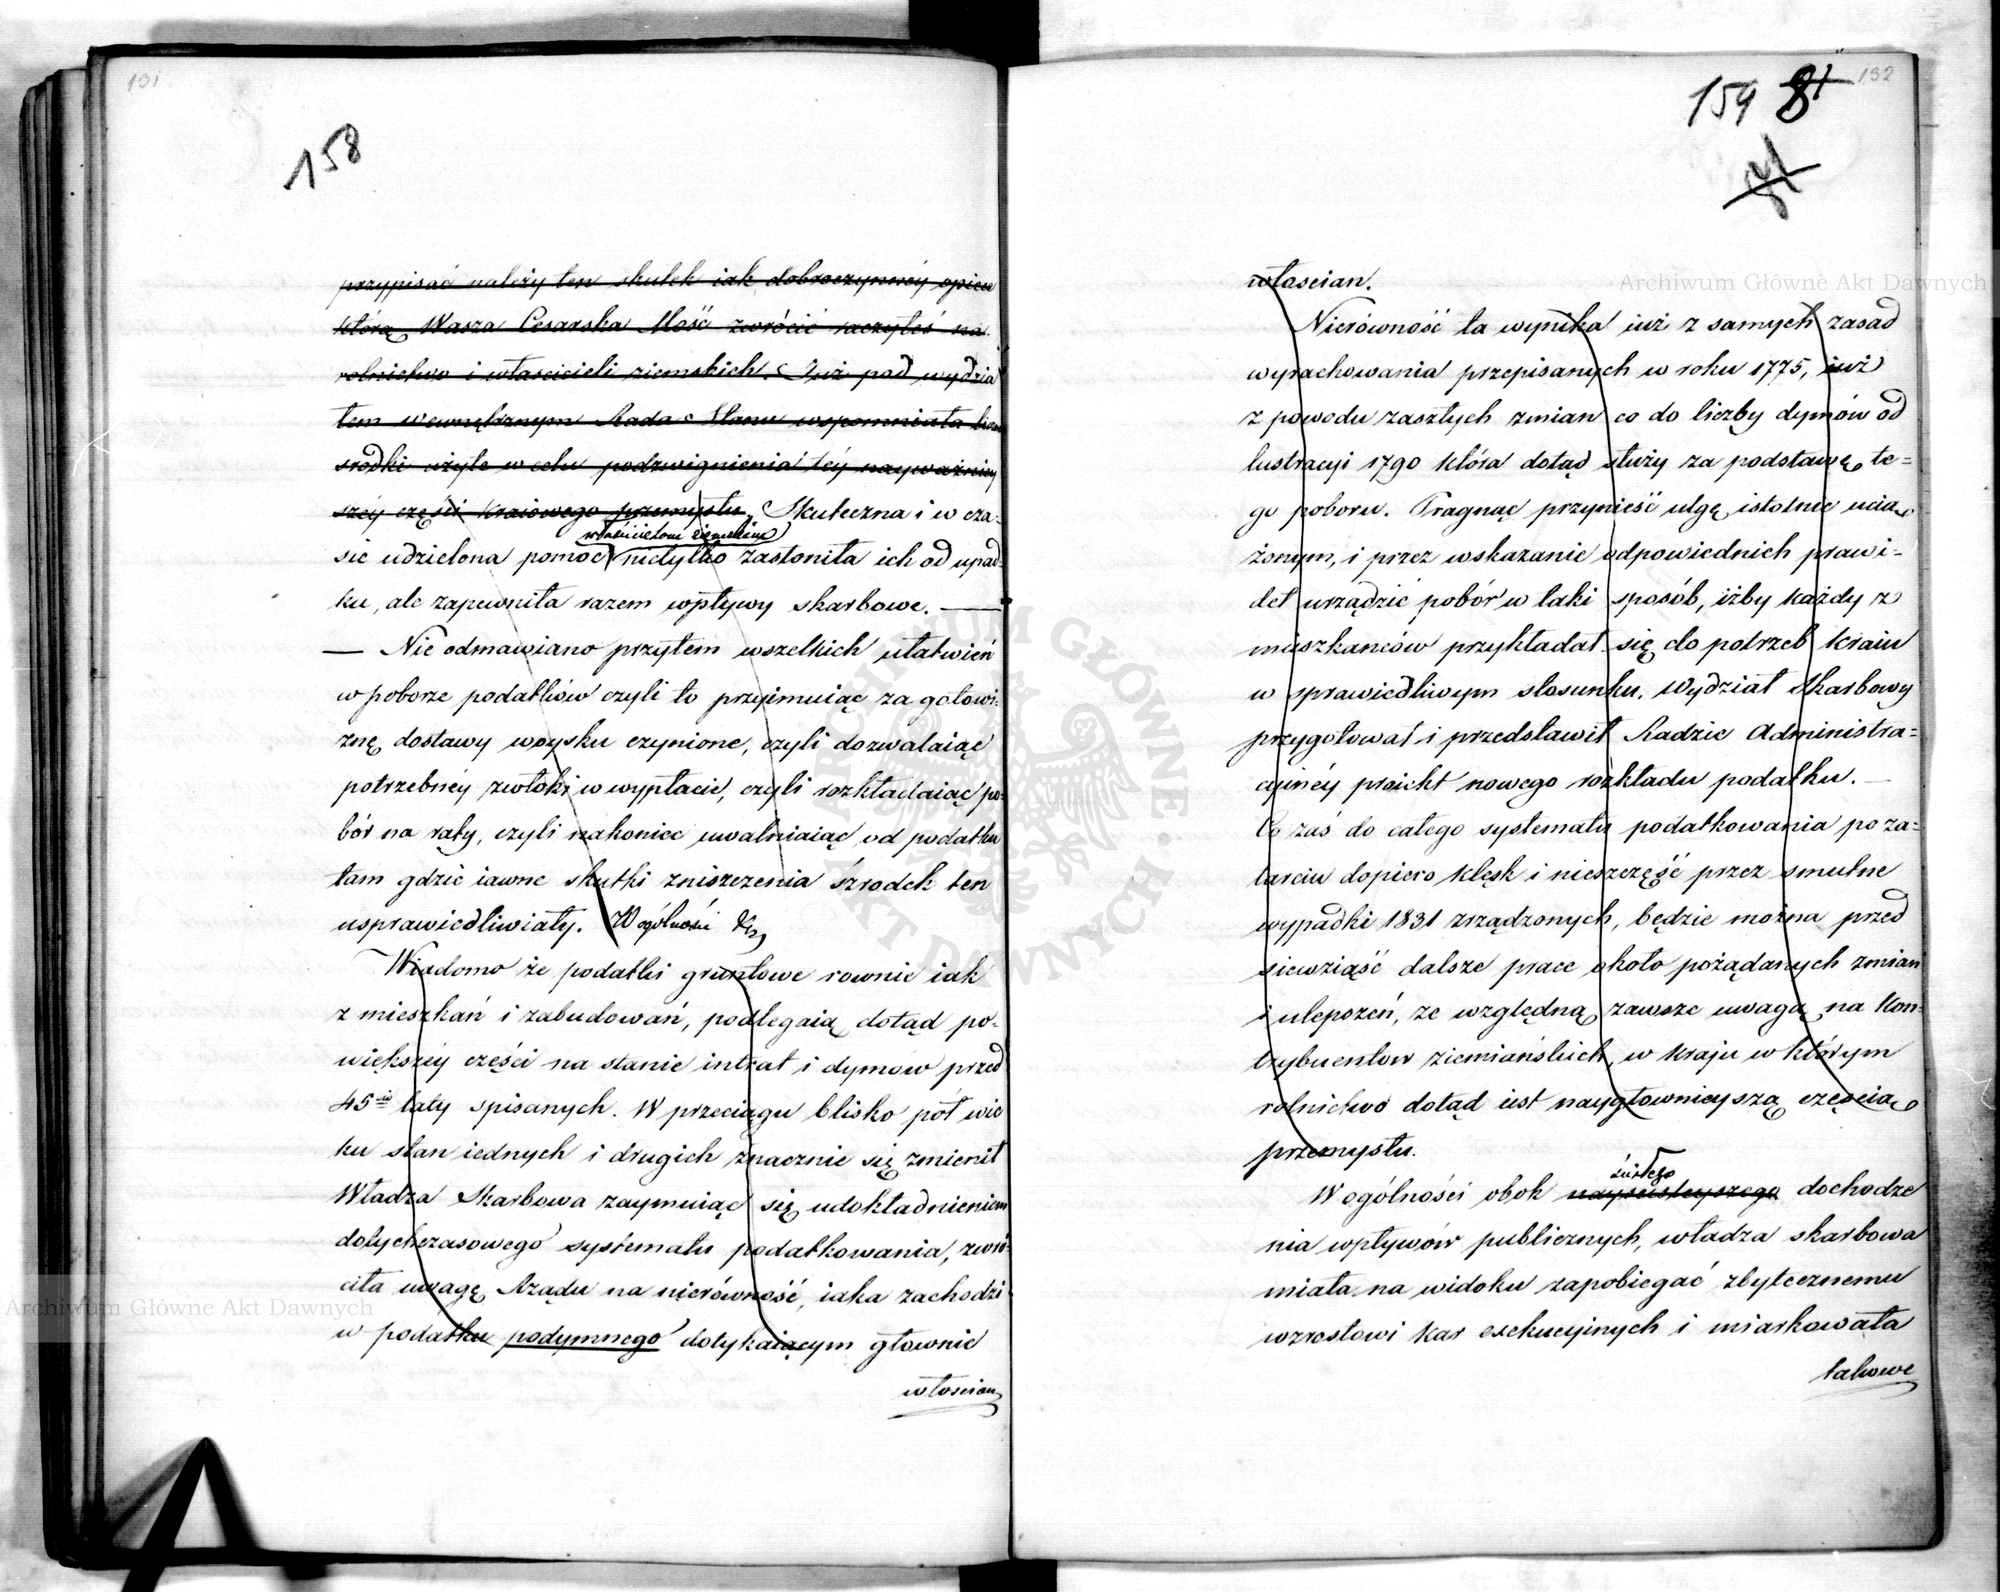 131
158
przypisać należy ten skutek iak dobroczynnéy opiece
którą Wasza Cesarska Mość zwrócić raczyłeś na
rolnictwo i właścicieli ziemskich. Już pod wydzia
łem wewnętrznym Rada Stanu wspomniała
srodki użyte w celu podzwignienia téy nayważniey
széy części kraiowego przemysłu. Skuteczna i w cza-
właścicielom ziemskim
sie udzielona pomoc nietylko zasłoniła ich od upad-
ku, ale zapewniła razem wpływy skarbowe. —
— Nie odmawiano przytem wszelkich ułatwień
w poborze podatków czyli to przyimuiąc za gotowi-
znę dostawy woysku czynione, czyli dozwalaiąc
potrzebnéy zwłoki w wypłacie, czyli rozkładaiąc po-
bór na raty, czyli nakoniec uwalniaiąc od podatku
tam gdzie iawne skutki zniszczenia śzrodek ten
usprawiedliwiały. W ogólności
Wiadomo że podatki gruntowe rownie iak
z mieszkań i zabudowań, podlegaią dotąd po-
większéy części na stanie intrat i dymów przed
45iu laty spisanych. W przeciągu blisko pół wie
ku stan iednych i drugich znacznie się zmienił
Władza Skarbowa zaymuiąc się udokładnieniem
dotychczasowego systematu podatkowania, zwró-
ciła uwagę Rządu na nierówność, iaka zachodzi
w podatku podymnego dotykaiącym głownie
włoscian
132
159 81
włoscian.
Nierówność ta wynika iuż z samych zasad
wyrachowania przepisanych w roku 1775, iuż
z powodu zaszłych zmian co do liczby dymów od
lustracyi 1790 która dotąd służy za podstawę te=
go poboru. Pragnąc przynieść ulgę istotnie ucią
żonym, i przez wskazanie odpowiednich prawi-
deł urządzić pobór w taki sposób, iżby każdy z
mieszkańców przykładał się do potrzeb kraiu
w sprawiedliwym stosunku. Wydział Skarbowy
przygotował i przedstawił Radzie Administra=
cyinéy proiekt nowego rozkładu podatku. —
Co zaś do całego systematu podatkowania po za=
tarciu dopiero klęsk i nieszczęść przez smutne
wypadki 1831 zrządzonych, będzie można przed
siewziąść dalsze prace około pożądanych zmian
i ulepszeń, ze względną zawsze uwagą na kon-
trybuentów ziemiańskich, w kraju w którym
rolnictwo dotąd iest naygłownieyszą częścią
przemysłu.
ścisłego
W ogólności obok nayściśleyszego dochodze
nia wpływów publicznych, władza skarbowa
miała na widoku zapobiegać zbytecznemu
wzrostowi kar exekucyinych i miarkowała
takowe
Archiwum Główne Akt Dawnych
Archiwum Główne Akt Dawnych
ARCHIWUM GŁÓWNE AKT DAWNYCH